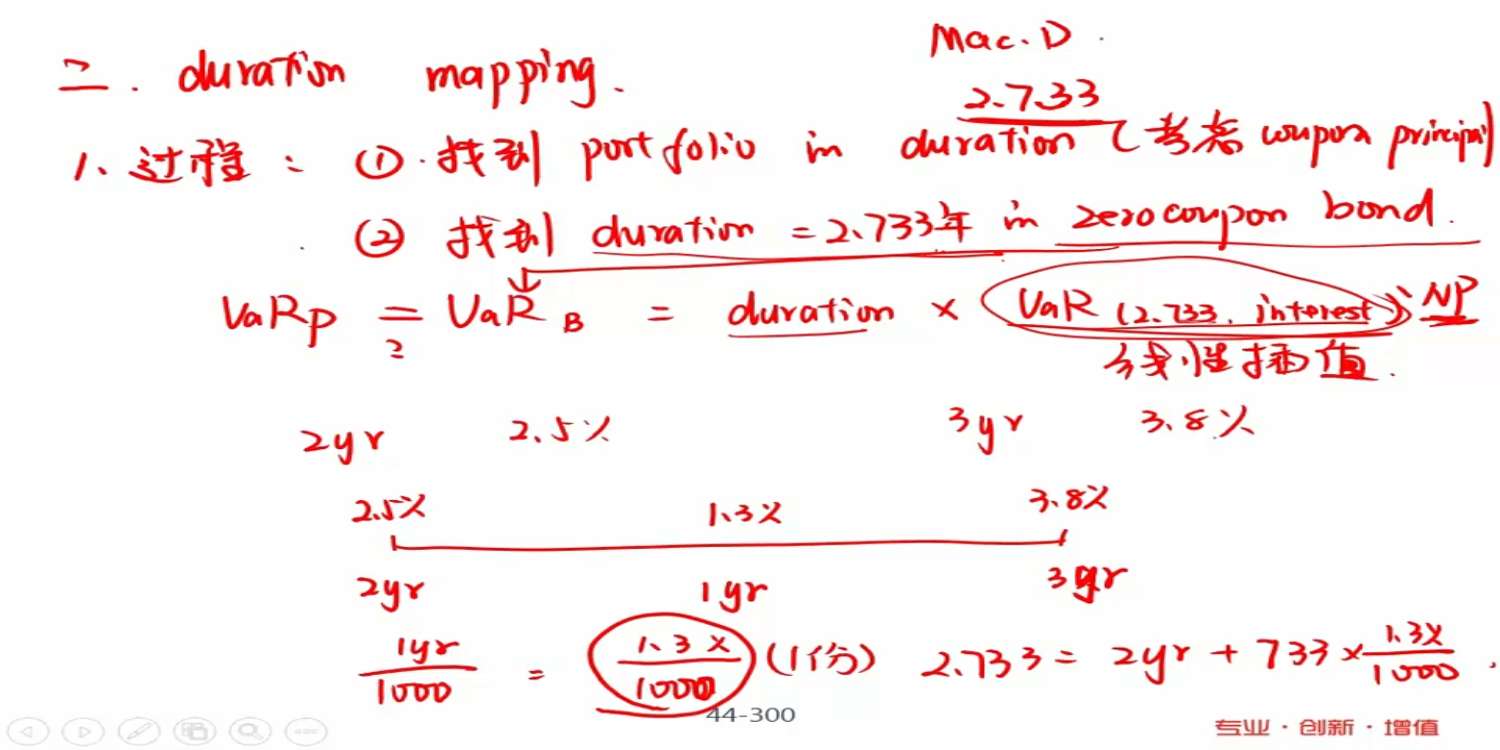 Mac. D.
二. duration mapping.
2.733
1、过程: ① 找到 portfolio in duration (考虑 coupon principal)
② 找到 duration = 2.733年 in zero coupon bond.
VaRp = VaR B = duration × VaR (2.733, interest) × NP
?
线性插值.
2yr 2.5% 3yr 3.8%
2.5% 1.3% 3.8%
2yr 1yr 3yr
1yr/1000 = 1.3%/1000 (1份) 2.733 = 2yr + 733 × 1.3%/1000.
44-300
专业·创新·增值